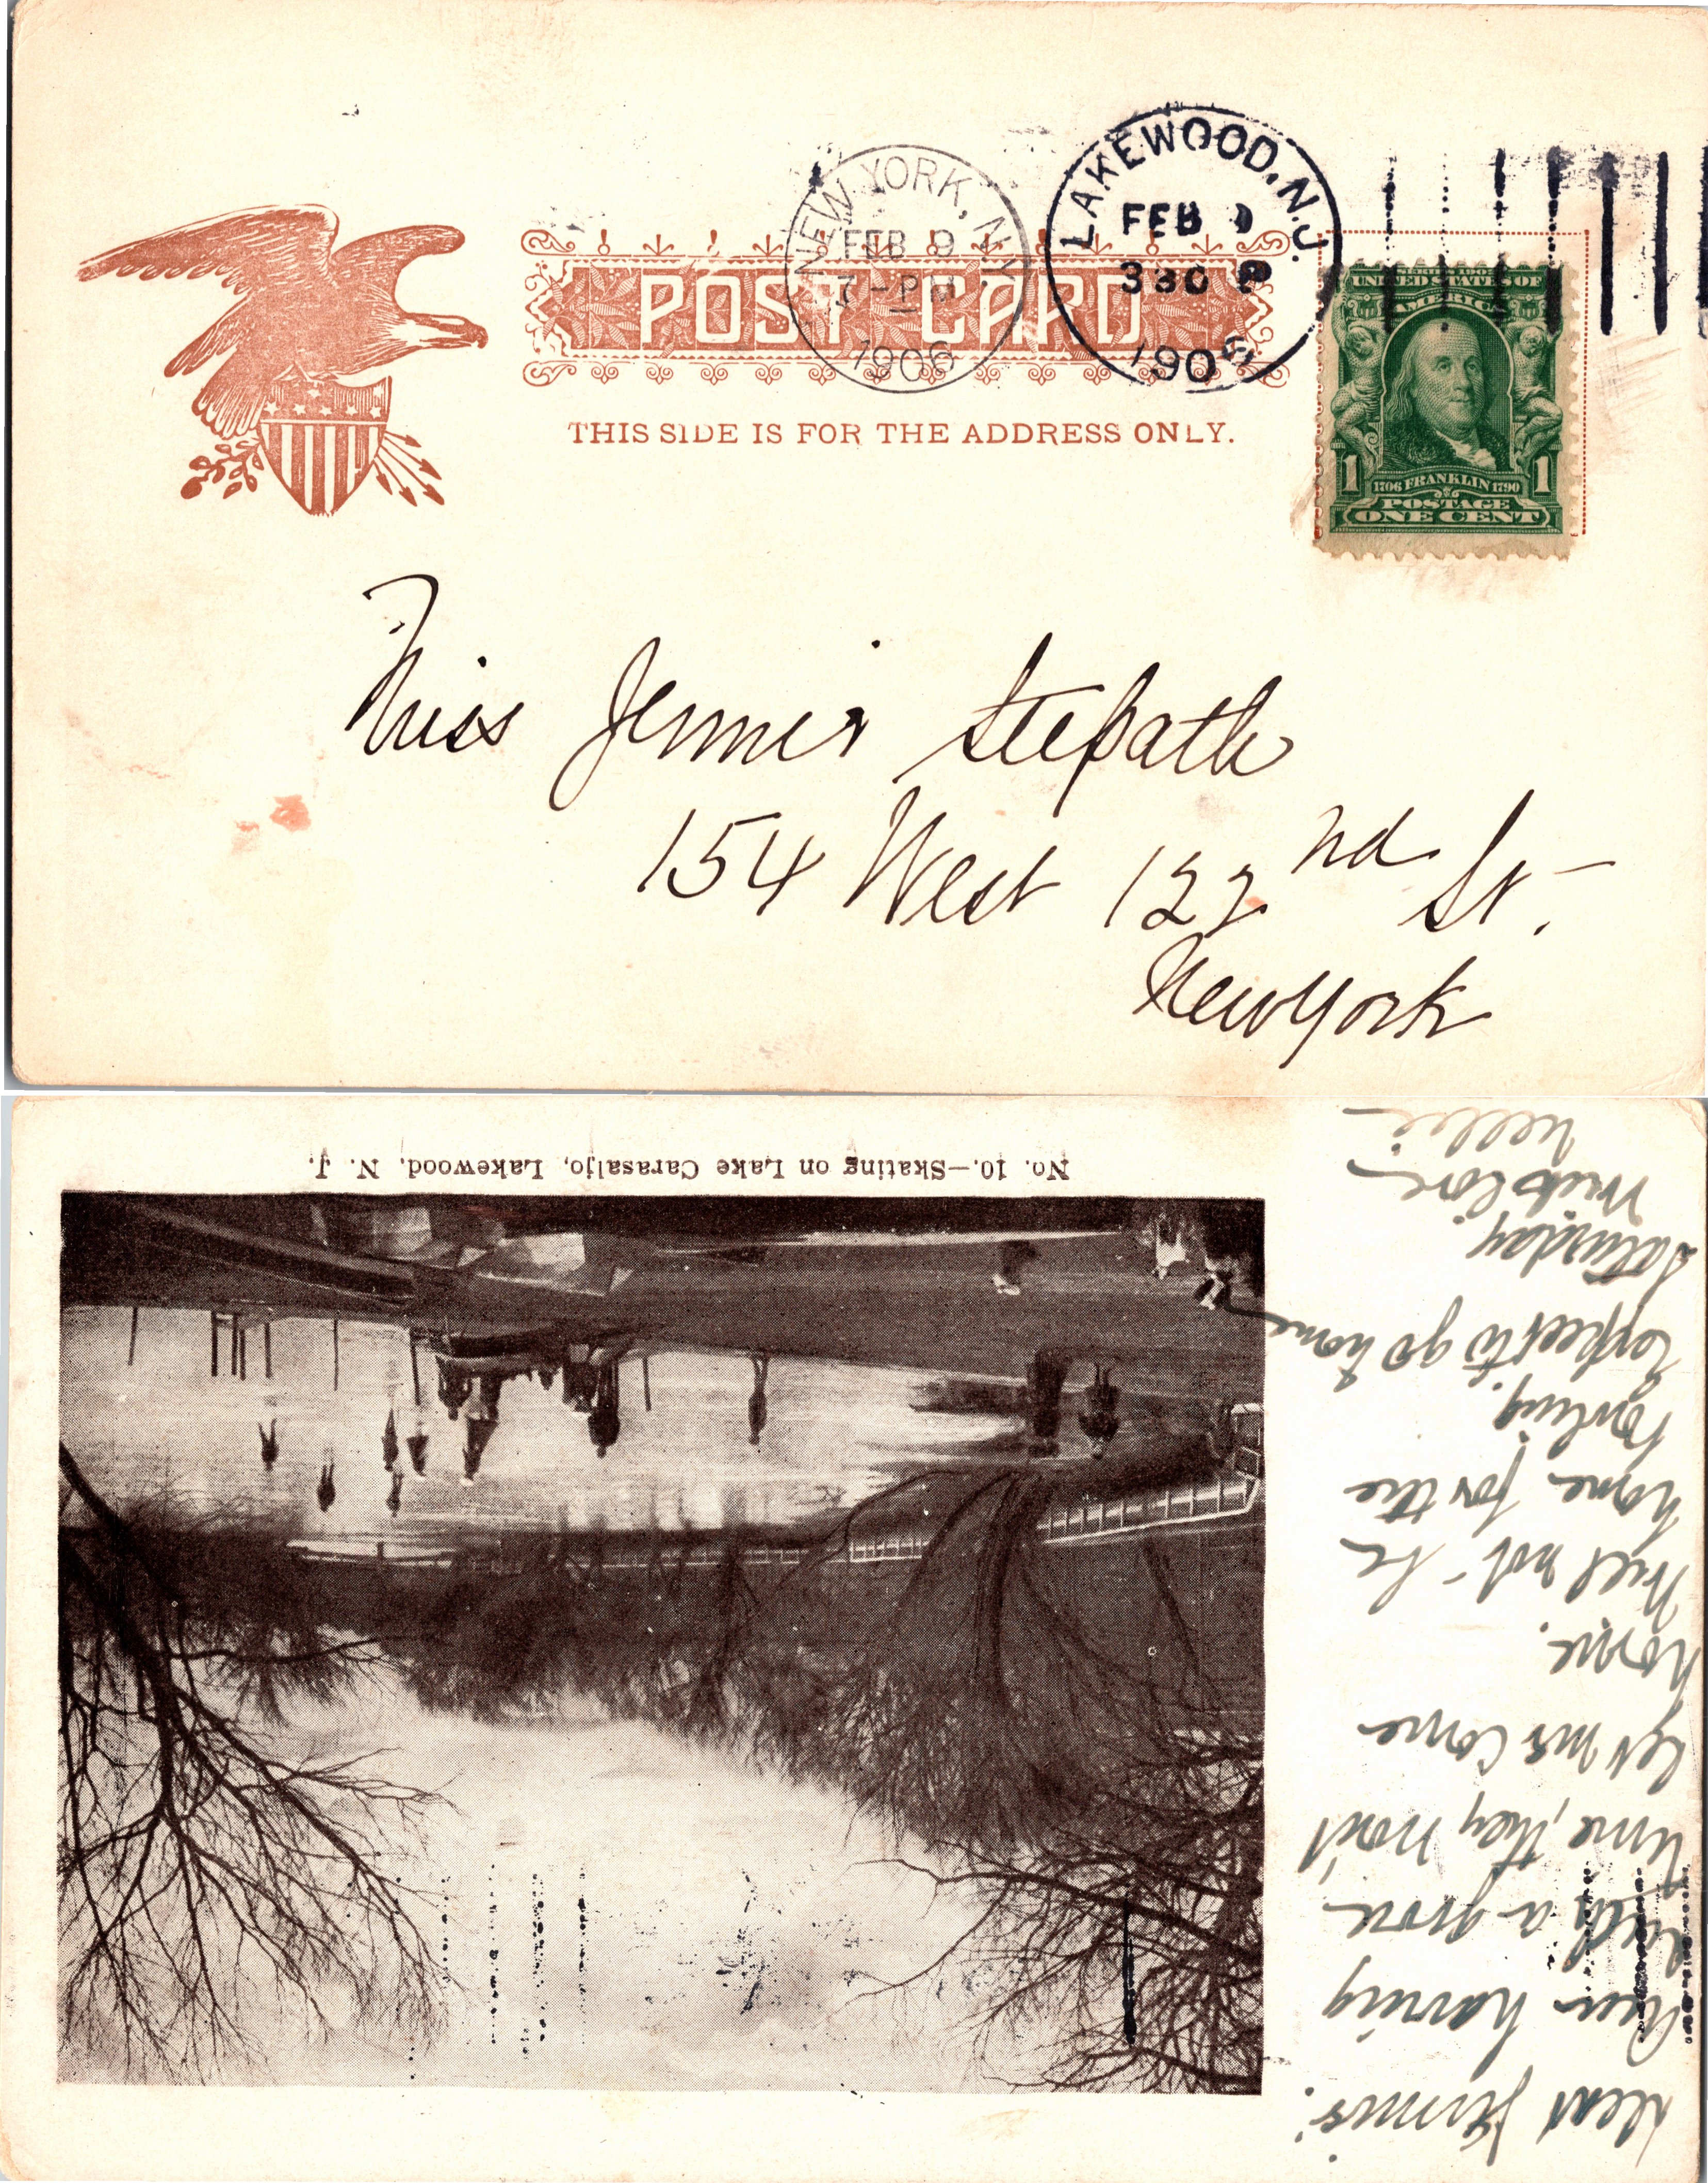 NEW YORK, N.Y.
FEB 9
7-PM
1906
LAKEWOOD, N.J.
FEB 9
330 P
1906
POST CARD
THIS SIDE IS FOR THE ADDRESS ONLY.
SERIES 1902
UNITED STATES OF
AMERICA
1706 FRANKLIN 1790
POSTAGE
1 1
ONE CENT
Miss Jennie Stepath
154 West 122nd St.
New York
No. 10.—Skating on Lake Carasaljo, Lakewood, N. J.
Dear Jennie:
Been having
such a good
time, they won't
let me come
home.
Will not be
home for the
bowling.
Expect to go home
Saturday
With love
Nellie